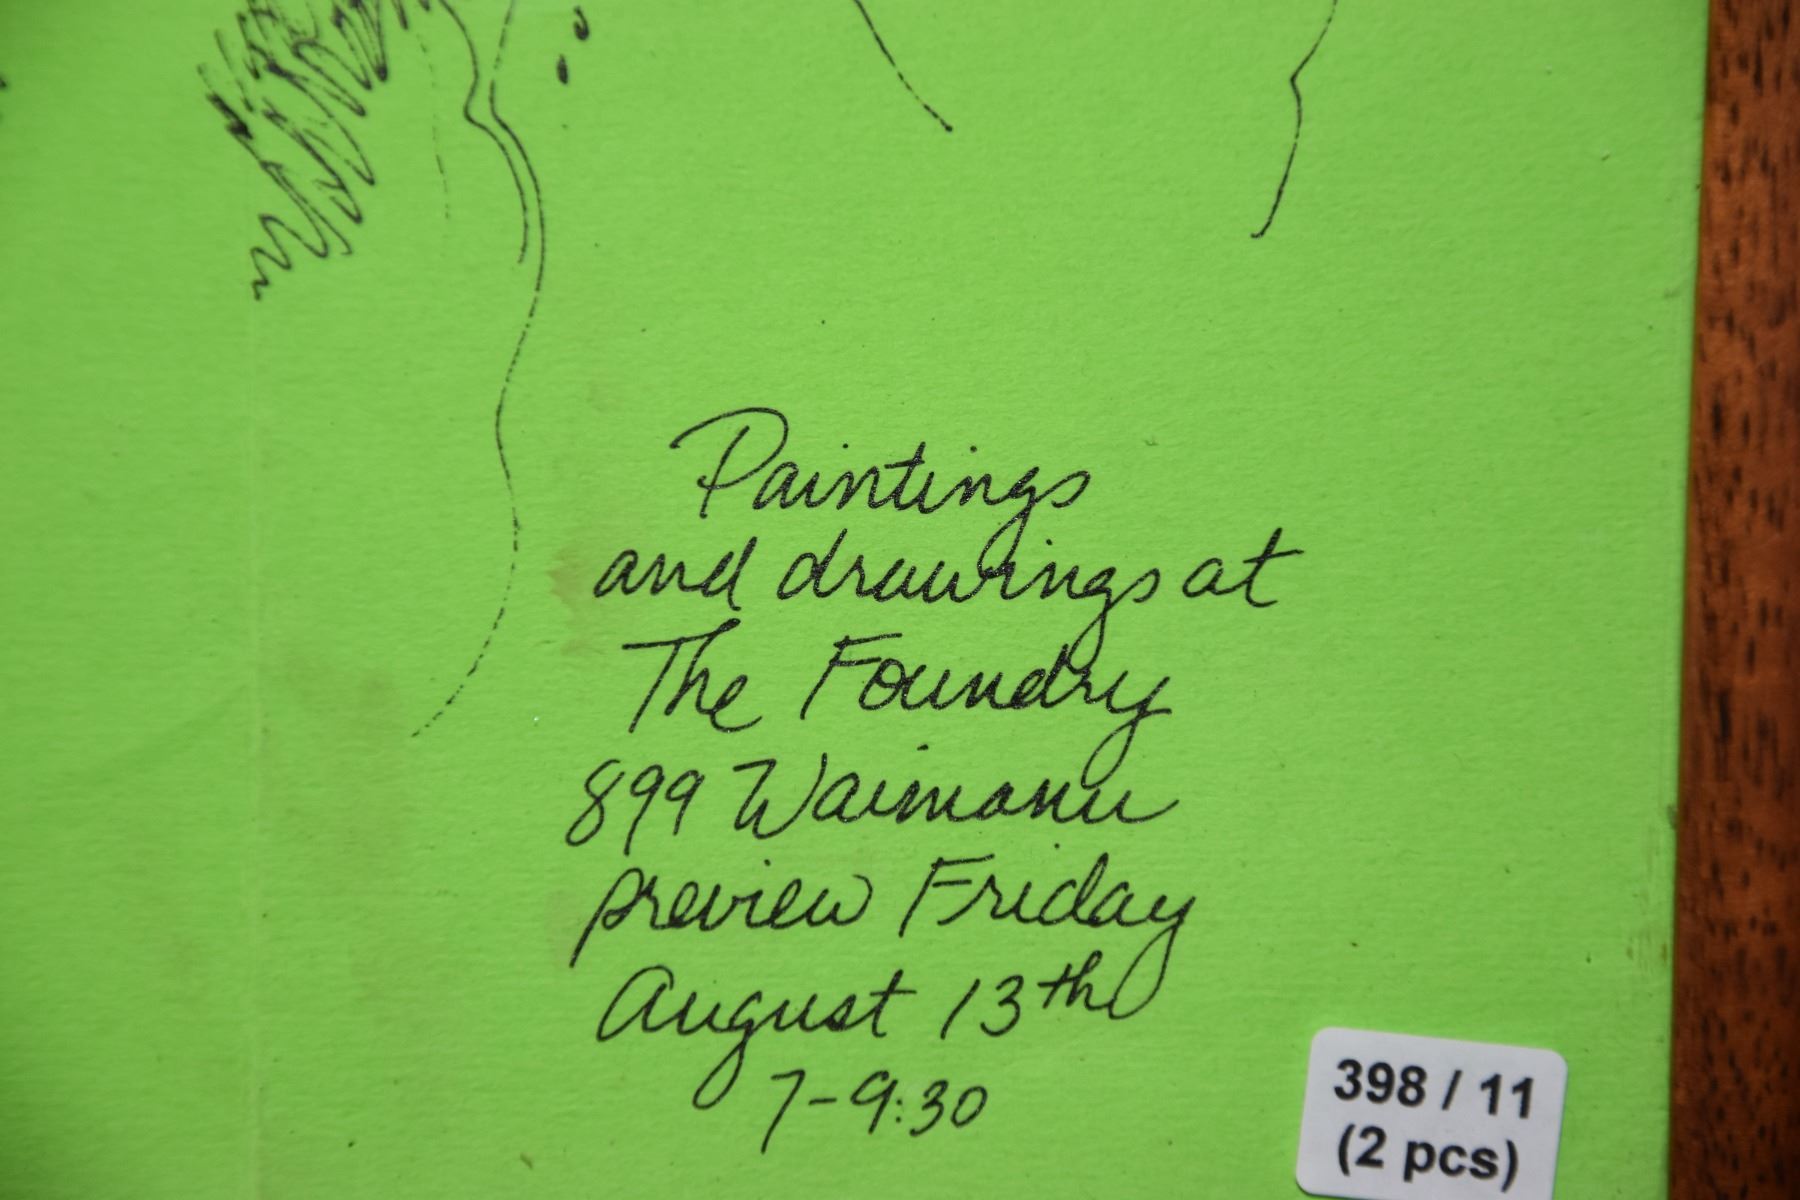 Paintings
and drawings at
The Foundry
899 Waimanu
preview Friday
August 13th
7-9:30
398 / 11
(2 pcs)